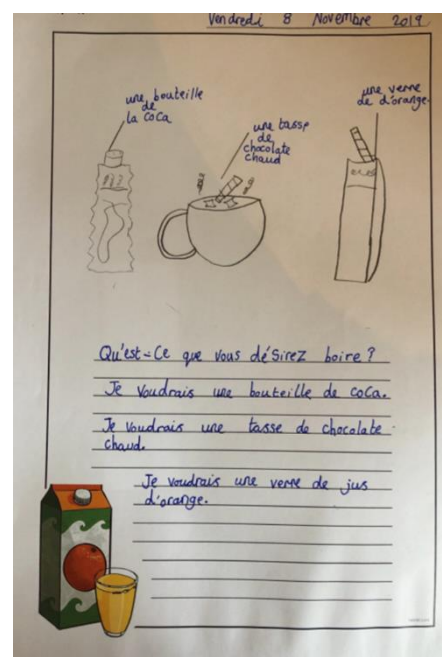 Vendredi 8 Novembre 2019
une bouteille
de
la coca
une tasse
de
chocolate
chaud
une verre
de d'orange.
Qu'est-ce que vous désirez boire?
Je voudrais une bouteille de coca.
Je voudrais une tasse de chocolate
chaud.
Je voudrais une verre de jus
d'orange.